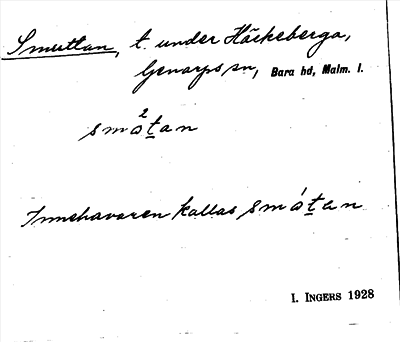 Smuttan, t. under Häckeberga,
Genarps sn, Bara hd, Malm. l.
sm 2 at an
Innehavaren kallas smátan
I. INGERS 1928